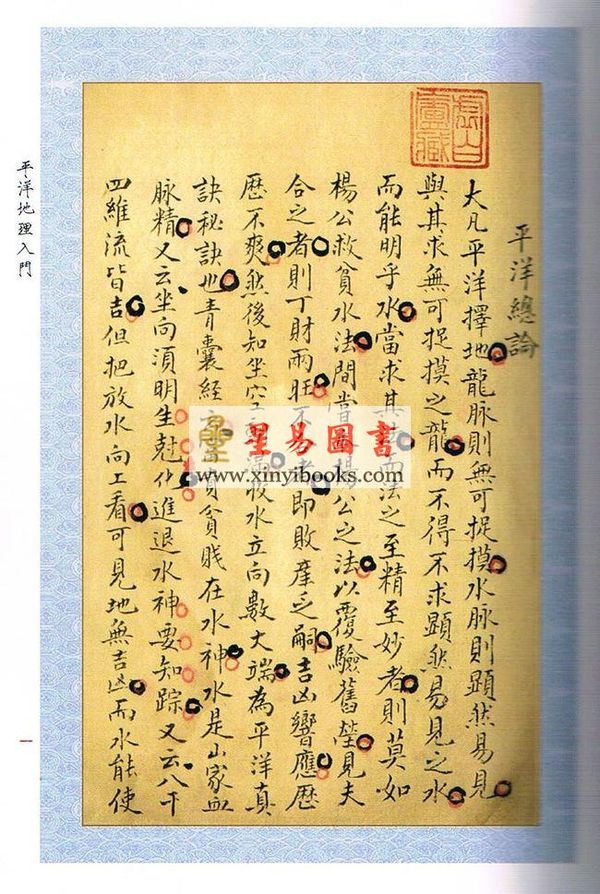 平洋總論
大凡平洋擇地龍脉則無可捉摸水脉則顕然易見
與其求無可捉摸之龍而不得不求顕然易見之水
而能明乎水當求其法而法之至精至妙者則莫如
楊公救貧水法間嘗楊公之法以覆驗舊塋見夫
合之者則丁財兩旺不者即敗產乏嗣吉凶響應歷
歷不爽然後知坐空滿收水立向數大端為平洋真
訣秘訣也青囊經云富貴貧賤在水神水是山家血
脉精又云坐向須明生尅化進退水神要知踪又云八干
四維流皆吉但把放水向上看可見地無吉凶而水能使
虛白廬藏
平洋地理入門
一
星易圖書
www.xinyibooks.com